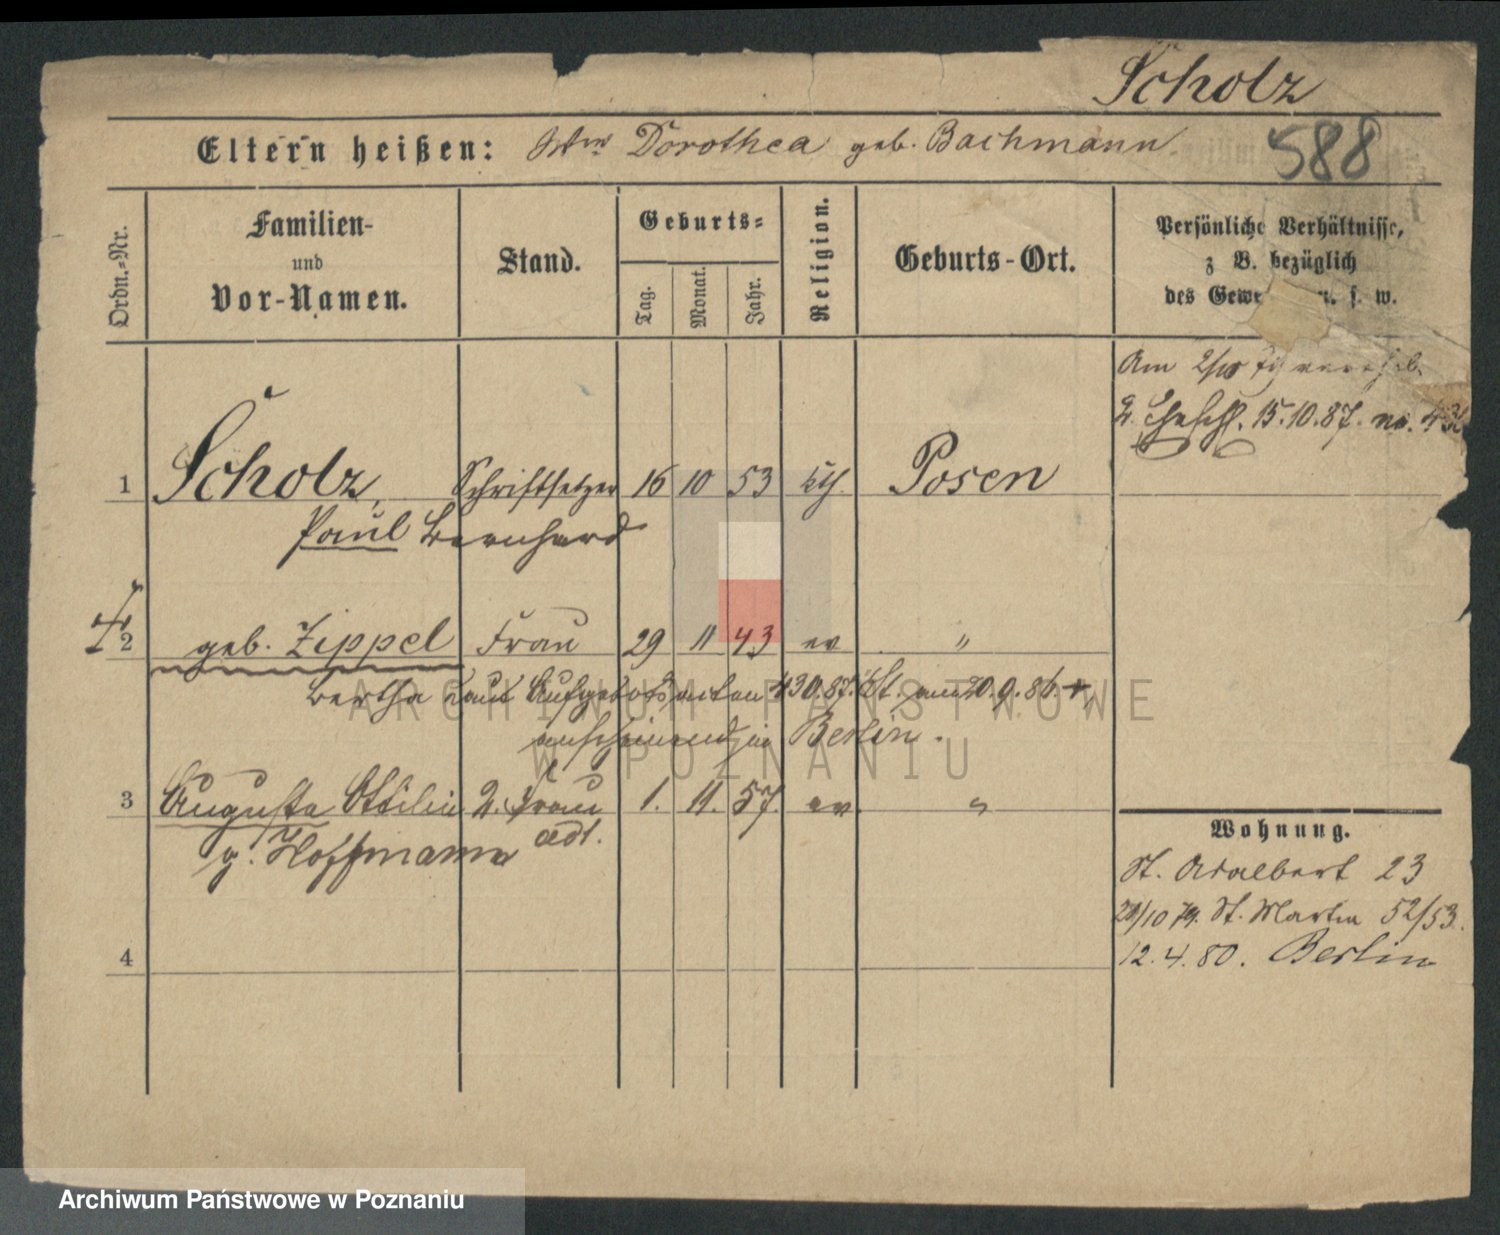 Scholz
588
Eltern heißen: Wwe Dorothea geb. Bachmann
Ordn.-Nr.
Familien-
und
Vor-Namen.
Stand.
Geburts-
Tag.
Monat.
Jahr.
Religion.
Geburts-Ort.
Persönliche Verhältnisse,
z B. bezüglich
des Gewe u. s. w.
Am 2/10 79
2. Eheschl. 15.10.87. no.
1 Scholz, Schriftsetzer 16 10 53 kth. Posen
Paul Bernhard
2 geb. Zippel Frau 29 11 43 ev "
Bertha laut Aufgebotsacten 430.87. St. am 20.9.86. +
anscheinend in Berlin.
3 Auguste Ottilie 2. Frau 1. 11. 57. ev. "
g. Hoffmann adt.
4
Wohnung.
St. Adalbert 23
/10 79. St. Martin 52/53.
12.4.80. Berlin
ARCHIWUM PAŃSTWOWE
W POZNANIU
Archiwum Państwowe w Poznaniu